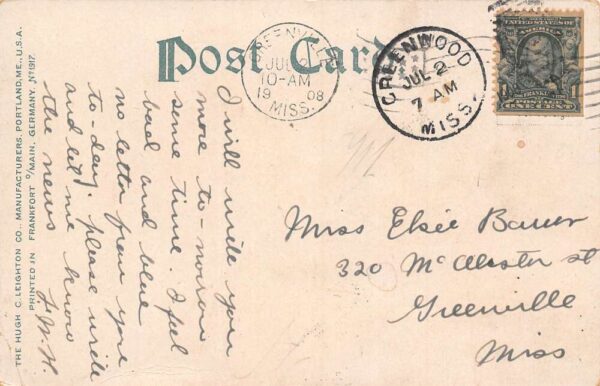 Post Card
GREENVILLE
JUL 2
10-AM
1908
MISS.
GREENWOOD
JUL 2
7 AM
MISS.
UNITED STATES OF AMERICA
1 1
FRANKLIN
POSTAGE
ONE CENT
I will write you
more to-morrow
some time. I feel
bad and blue
no letter from you
to-day. please write
and let me know
the news J.W.H.
Miss Elsie Bauer
320 McAlester st
Greenville
Miss
THE HUGH C. LEIGHTON CO., MANUFACTURERS, PORTLAND, ME., U.S.A.
PRINTED IN FRANKFORT O/MAIN, GERMANY. No 1917.